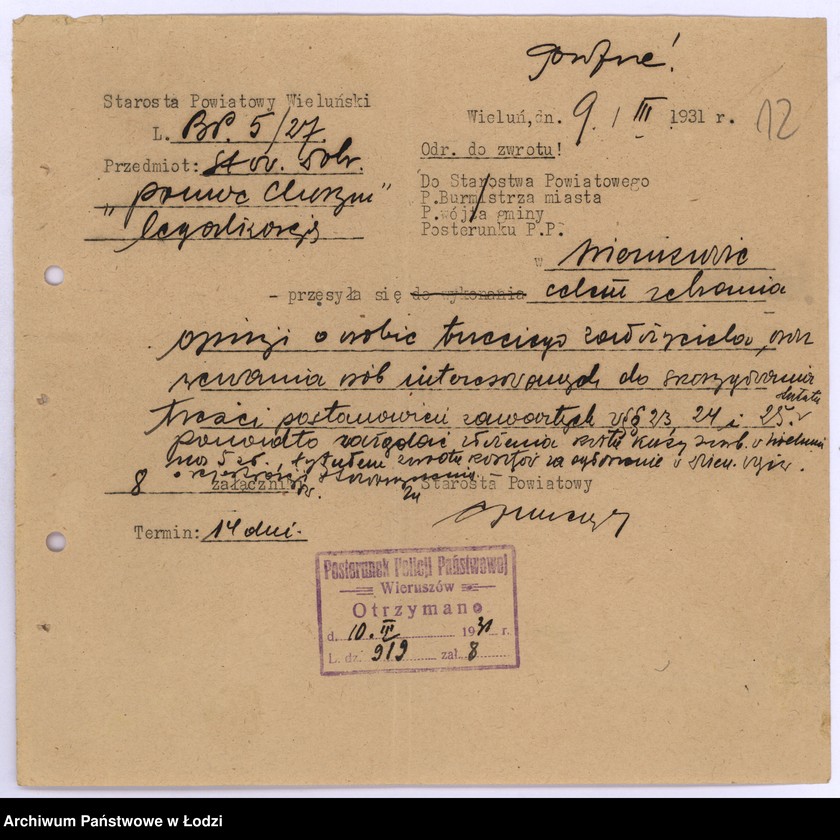 poufne!
12
Starosta Powiatowy Wieluński
Wieluń,dn. 9. / III 1931 r.
L. BP. 5/27.
Odr. do zwrotu!
Przedmiot: Stow. Dobr.
"Pomoc Chorym"
legalizacja
Do Starostwa Powiatowego
P.Burmistrza miasta
P.wójta gminy
Posterunku P.P.
w Wieruszowie
- przesyła się do wykonania celem zebrania
opinji o osobie trzeciego założyciela, oraz
wezwania osób interesowanych do skorygowania
treści postanowień zawartych w §§ 23 24 i 25. statutu
ponadto zażądać złożenia kwitu Kasy Skarb. w Wieluniu
na 5 zł. tytułem zwrotu kosztów za ogłoszenie w
o rejestracji stowarzyszenia
8 załączników.
Starosta Powiatowy
Termin: 14 dni.
Posterunek Policji Państwowej
Wieruszów
Otrzymano
d. 10. III 1931 r.
L. dz. 919 zał. 8
Archiwum Państwowe w Łodzi